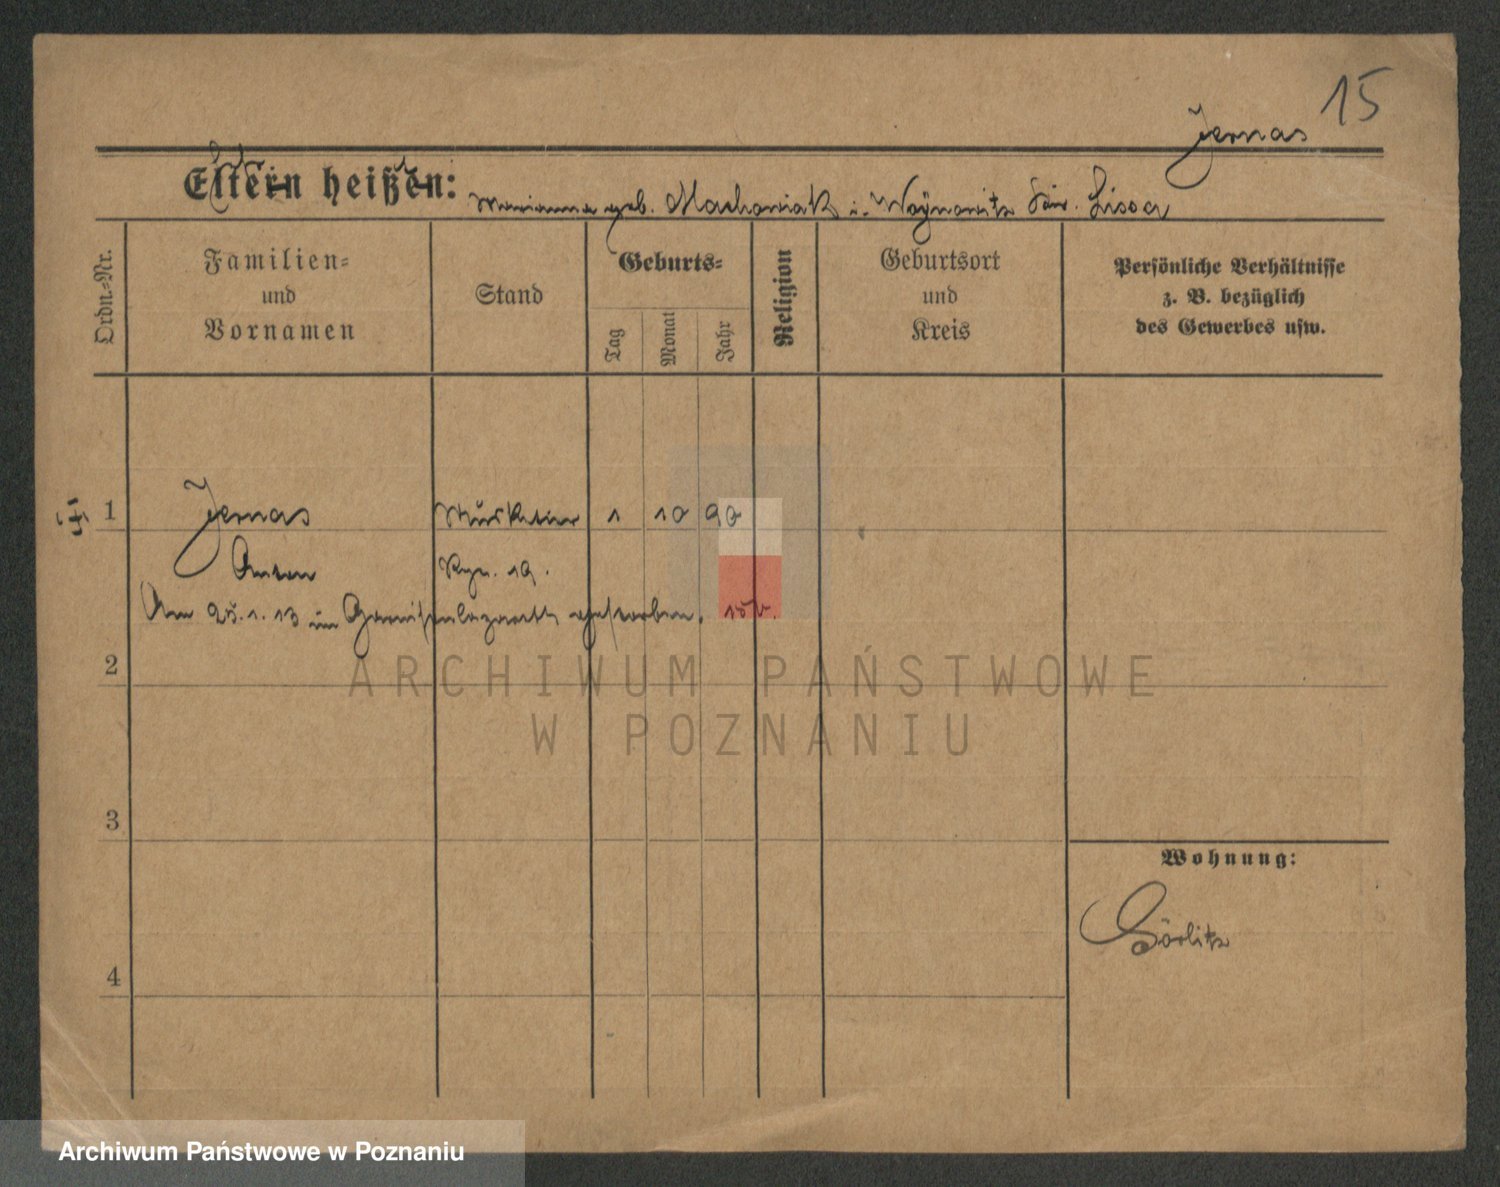 15
Jernas
Eltern heißen: Marianna geb. Machowiak i. Woynowitz Lissa
Ordn.-Nr.
Familien-
und
Vornamen
Stand
Geburts-
Tag
Monat
Jahr
Religion
Geburtsort
und
Kreis
Persönliche Verhältnisse
z. B. bezüglich
des Gewerbes usw.
1 Jernas Musketier 1 10 90
Anton Rgt. 19.
Am 25.1.13 im Garnisonlazarett gestorben.
2
ARCHIWUM PAŃSTWOWE
W POZNANIU
3
Wohnung:
Görlitz
4
Archiwum Państwowe w Poznaniu